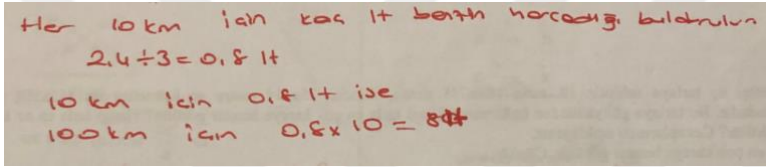 Her 10 km için kaç lt benzin harcadığı buldurulur
2,4÷3=0,8 lt
10 km için 0,8 lt ise
100 km için 0,8x10=8lt